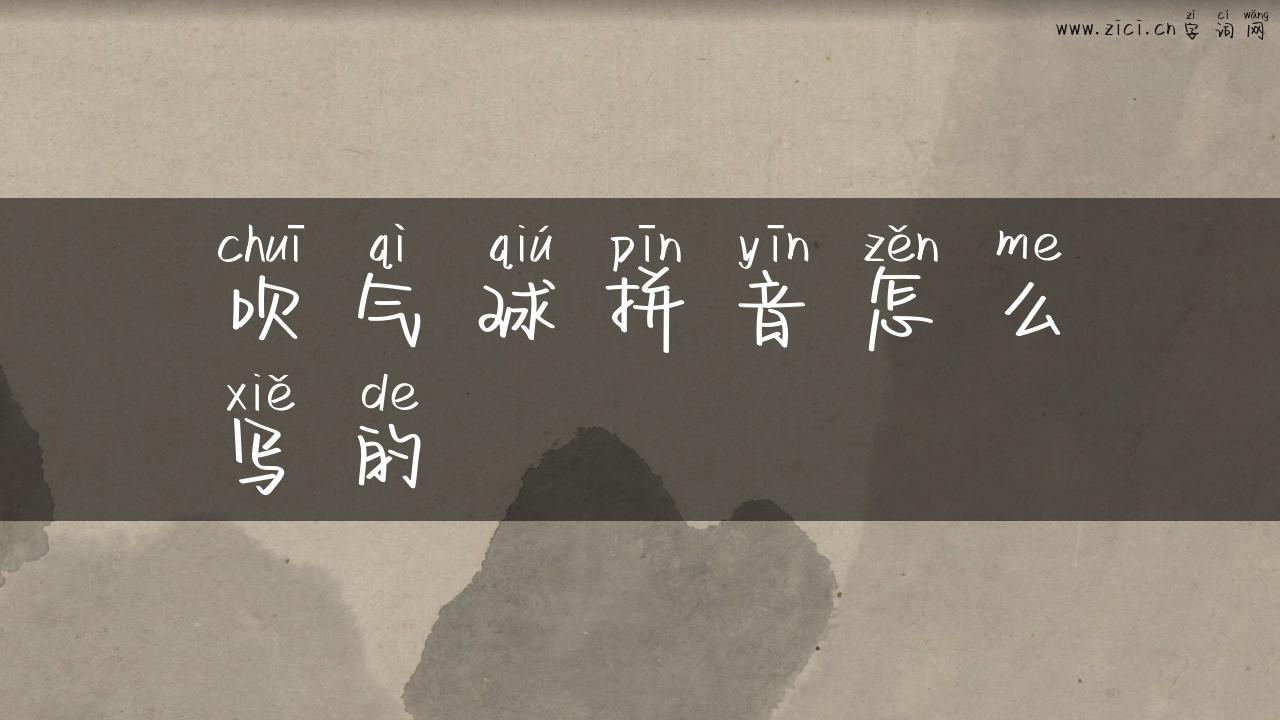 zì cí wǎng
www.zici.cn字词网
chuī qì qiú pīn yīn zěn me
吹气球拼音怎么
xiě de
写的